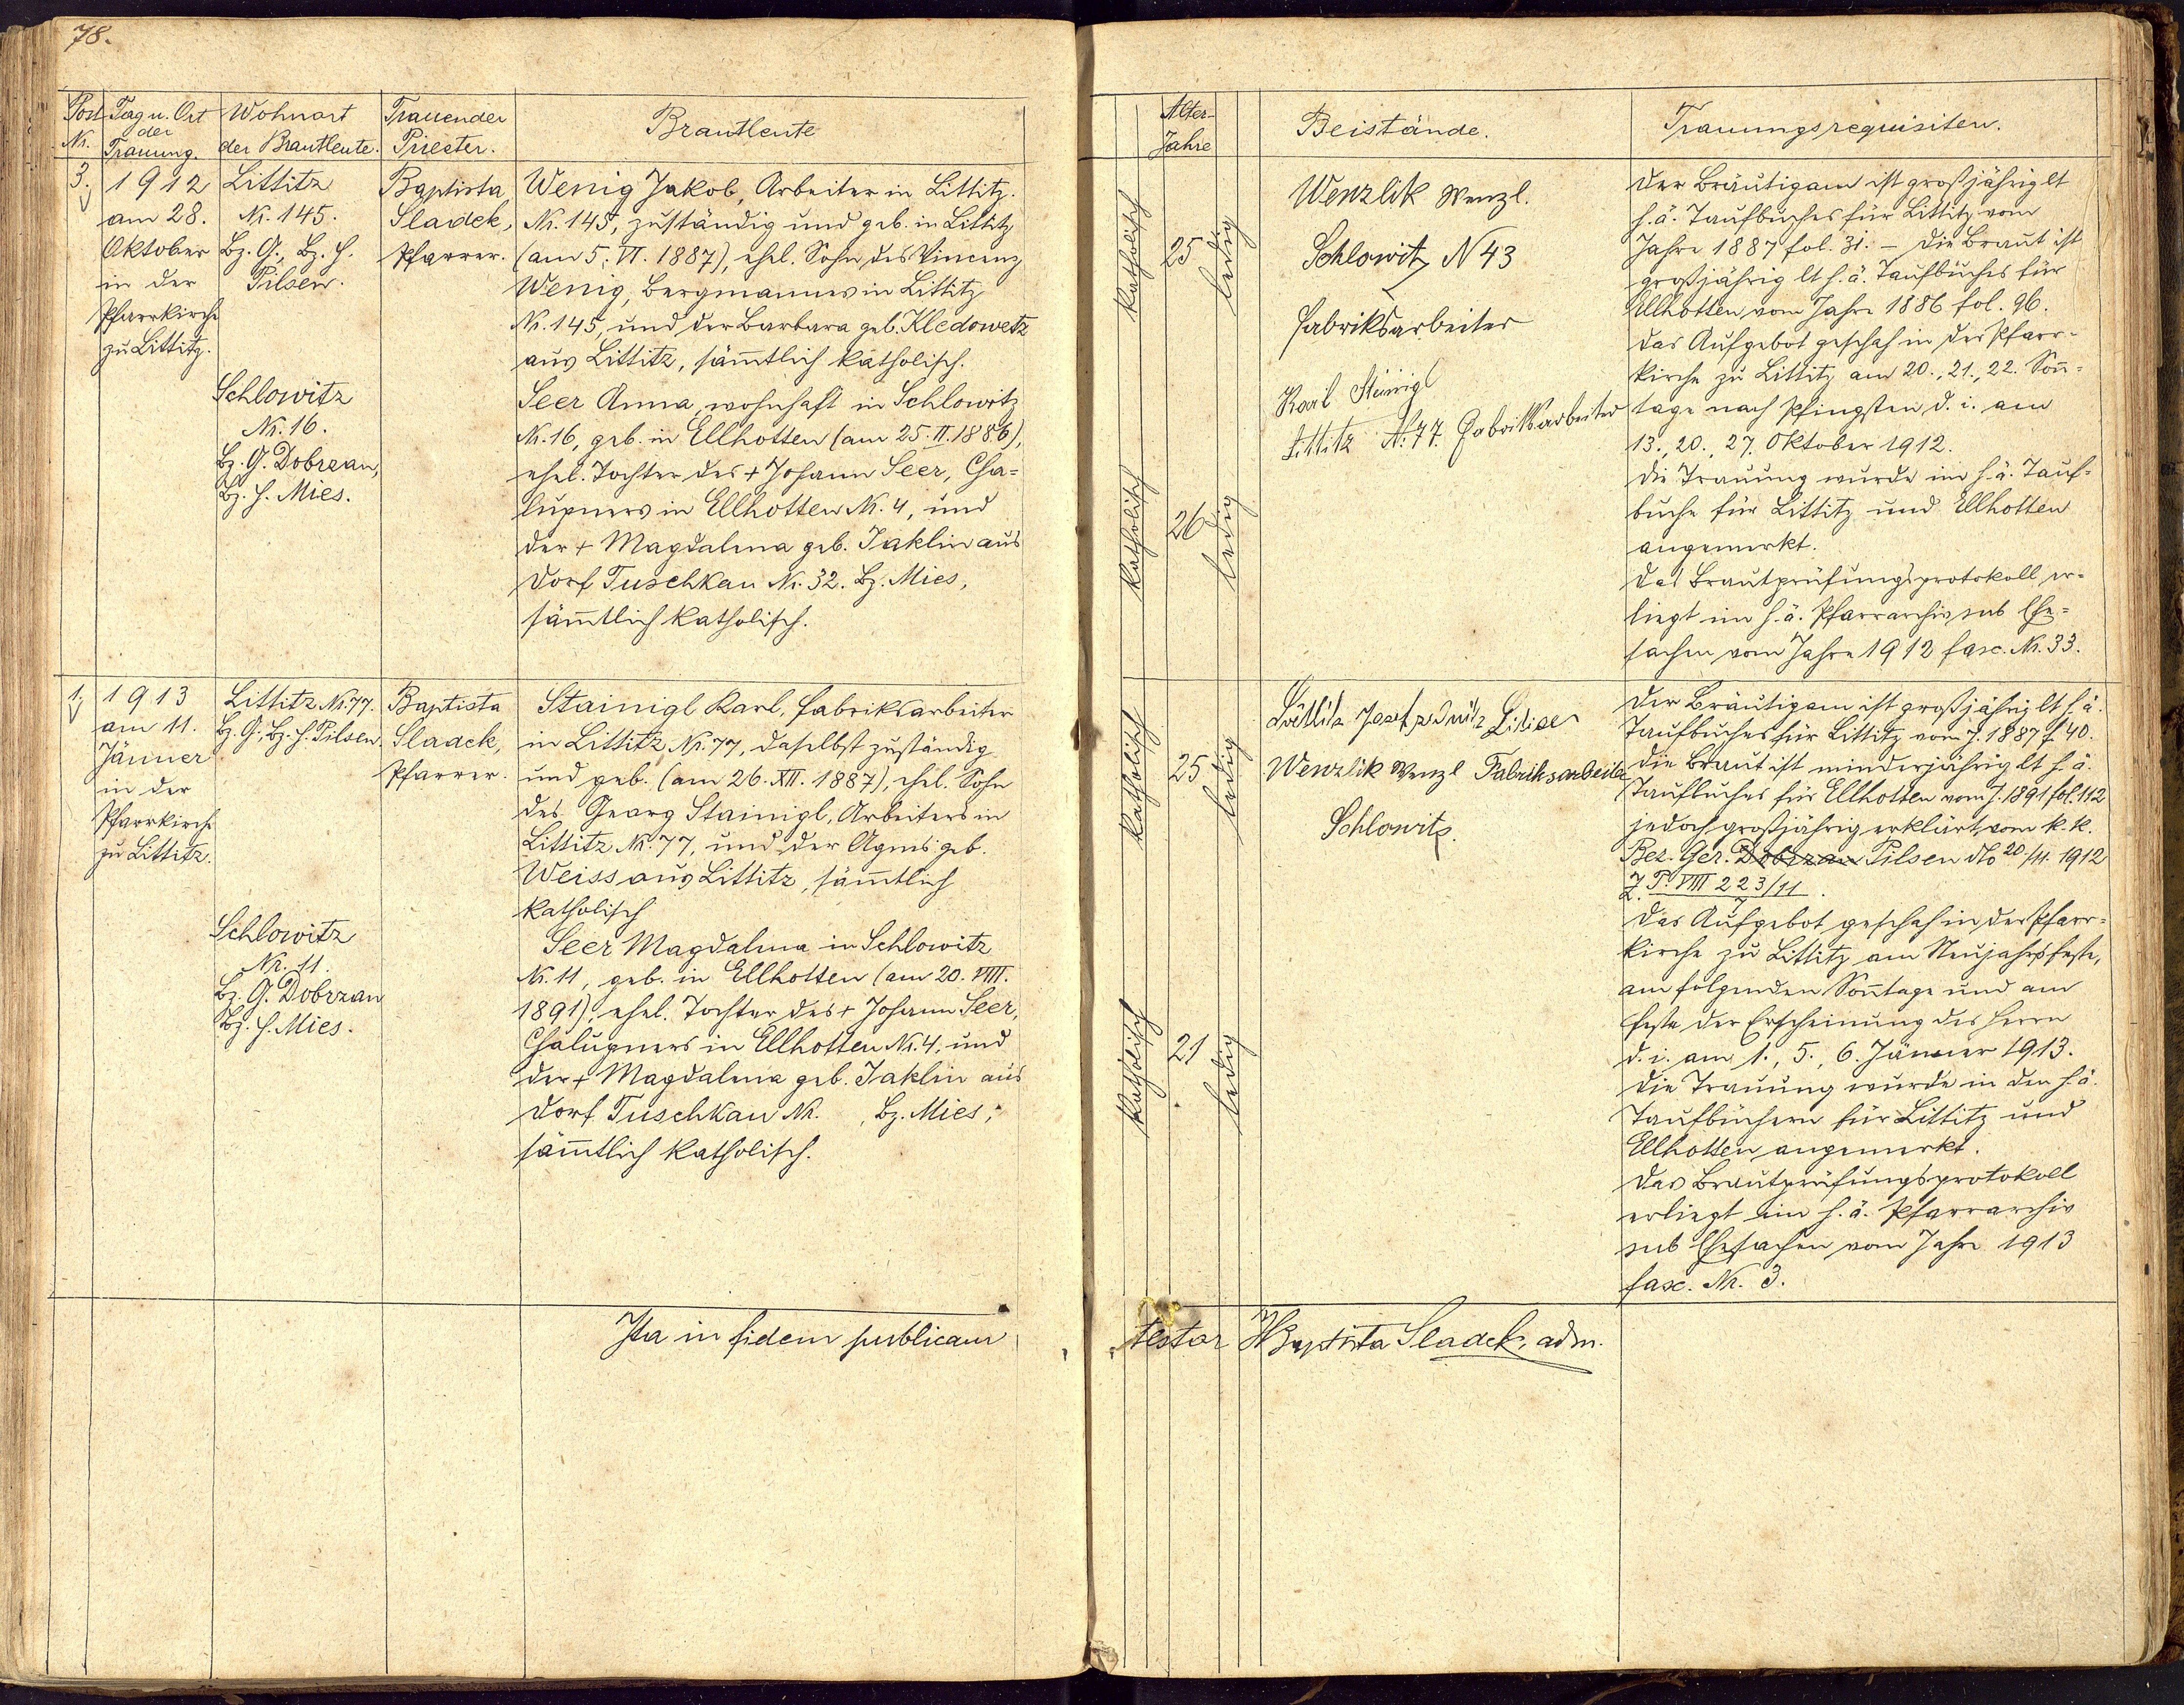 78.
Post Nr.
Tag u. Ort
der
Trauung.
Wohnort
der Brautleute.
Trauender
Priester.
Brautleute
3.
1912
am 28.
Oktober
in der
Pfarrkirche
zu Littitz.
Littitz
Nr. 145.
Bz. G., Bz. H.
Pilsen.
Schlowitz
Nr. 16.
Bz. G. Dobrzan,
Bz. H. Mies.
Baptista
Sladek,
Pfarrer.
Wenig Jakob, Arbeiter in Littitz.
Nr. 145, zuständig und geb. in Littitz
(am 5. VI. 1887), ehel. Sohn des Vincenz
Wenig, Bergmannes in Littitz
Nr. 145, und der Barbara geb. Kledowetz
aus Littitz, säm̅tlich katholisch.
Seer Anna, wohnhaft in Schlowitz
Nr. 16, geb. in Ellhotten (am 25. II. 1886),
ehel. Tochter des + Johann Seer, Cha=
lupners in Ellhotten Nr. 4, und
der + Magdalena geb. Jaklin aus
Dorf Tuschkau Nr. 32. Bz. Mies,
säm̅tlich katholisch.
1.
1913
am 11.
Jänner
in der
Pfarrkirche
zu Littitz.
Littitz Nr. 77.
Bz. G., Bz. H. Pilsen.
Schlowitz
Nr. 11.
Bz. G. Dobrzan
Bz. H. Mies.
Baptista
Sladek,
Pfarrer.
Stainigl Karl, Fabriksarbeiter
in Littitz Nr. 77, daselbst zuständig
und geb. (am 26. XII. 1887), ehel. Sohn
des Georg Stainigl, Arbeiters in
Littitz Nr. 77, und der Agnes geb.
Weiss aus Littitz, säm̅tlich
katholisch
Seer Magdalena in Schlowitz
Nr. 11, geb. in Ellhotten (am 20. VIII.
1891), ehel. Tochter des + Johann Seer,
Chalupners in Ellhotten Nr. 4, und
der + Magdalena geb. Jaklin aus
Dorf Tuschkau Nr. , Bz. Mies,
säm̅tlich katholisch.
Ita in fidem publicam
Alter-
Jahre
Beistände.
Trauungsrequisiten.
katholisch
25
ledig
katholisch
26
ledig
Wenzlik Wenzl.
Schlowitz N 43
Fabriksarbeiter
Karl Steinigl
Littitz N. 77. Fabriksarbeiter
Der Bräutigam ist großjährig lt
h. ä. Taufbuches für Littitz vom
Jahre 1887 fol. 31. – Die Braut ist
großjährig lt h. ä. Taufbuches für
Ellhotten vom Jahre 1886 fol. 96.
Das Aufgebot geschah in der Pfarr-
kirche zu Littitz am 20., 21., 22. Son̅=
tage nach Pfingsten d. i. am
13., 20., 27. Oktober 1912.
Die Trauung wurde im h. ä. Tauf=
buche für Littitz und Ellhotten
angemerkt.
Das Brautprüfungsprotokoll er=
liegt im h. ä. Pfarrarchiv sub Ehe=
sachen vom Jahre 1912 fasc. Nr. 33.
katholisch
25
ledig
katholisch
21
ledig
Josef
Wenzlik Wenzl Fabriksarbeiter
Schlowitz.
Der Bräutigam ist großjährig lt h. ä.
Taufbuches für Littitz vom J. 1887 f. 40.
Die Braut ist minderjährig lt h. ä.
Taufbuches für Ellhotten vom J. 1891 fol. 112
jedoch großjährig erklärt vom k. k.
Bez. Ger. Dobrzan Pilsen dto 20/11. 1912
Z. P. VIII 223/11.
Das Aufgebot geschah in der Pfarr=
kirche zu Littitz am Neujahrsfeste,
am folgenden Son̅tage und am
Feste der Erscheinung des Herrn
d. i. am 1., 5., 6. Jänner 1913.
Die Trauung wurde in den h. ä.
Taufbüchern für Littitz und
Ellhotten angemerkt.
Das Brautprüfungsprotokoll
erliegt im h. ä. Pfarrarchiv
sub Ehesachen vom Jahre 1913
fasc. Nr. 3.
testor Baptista Sladek, adm.